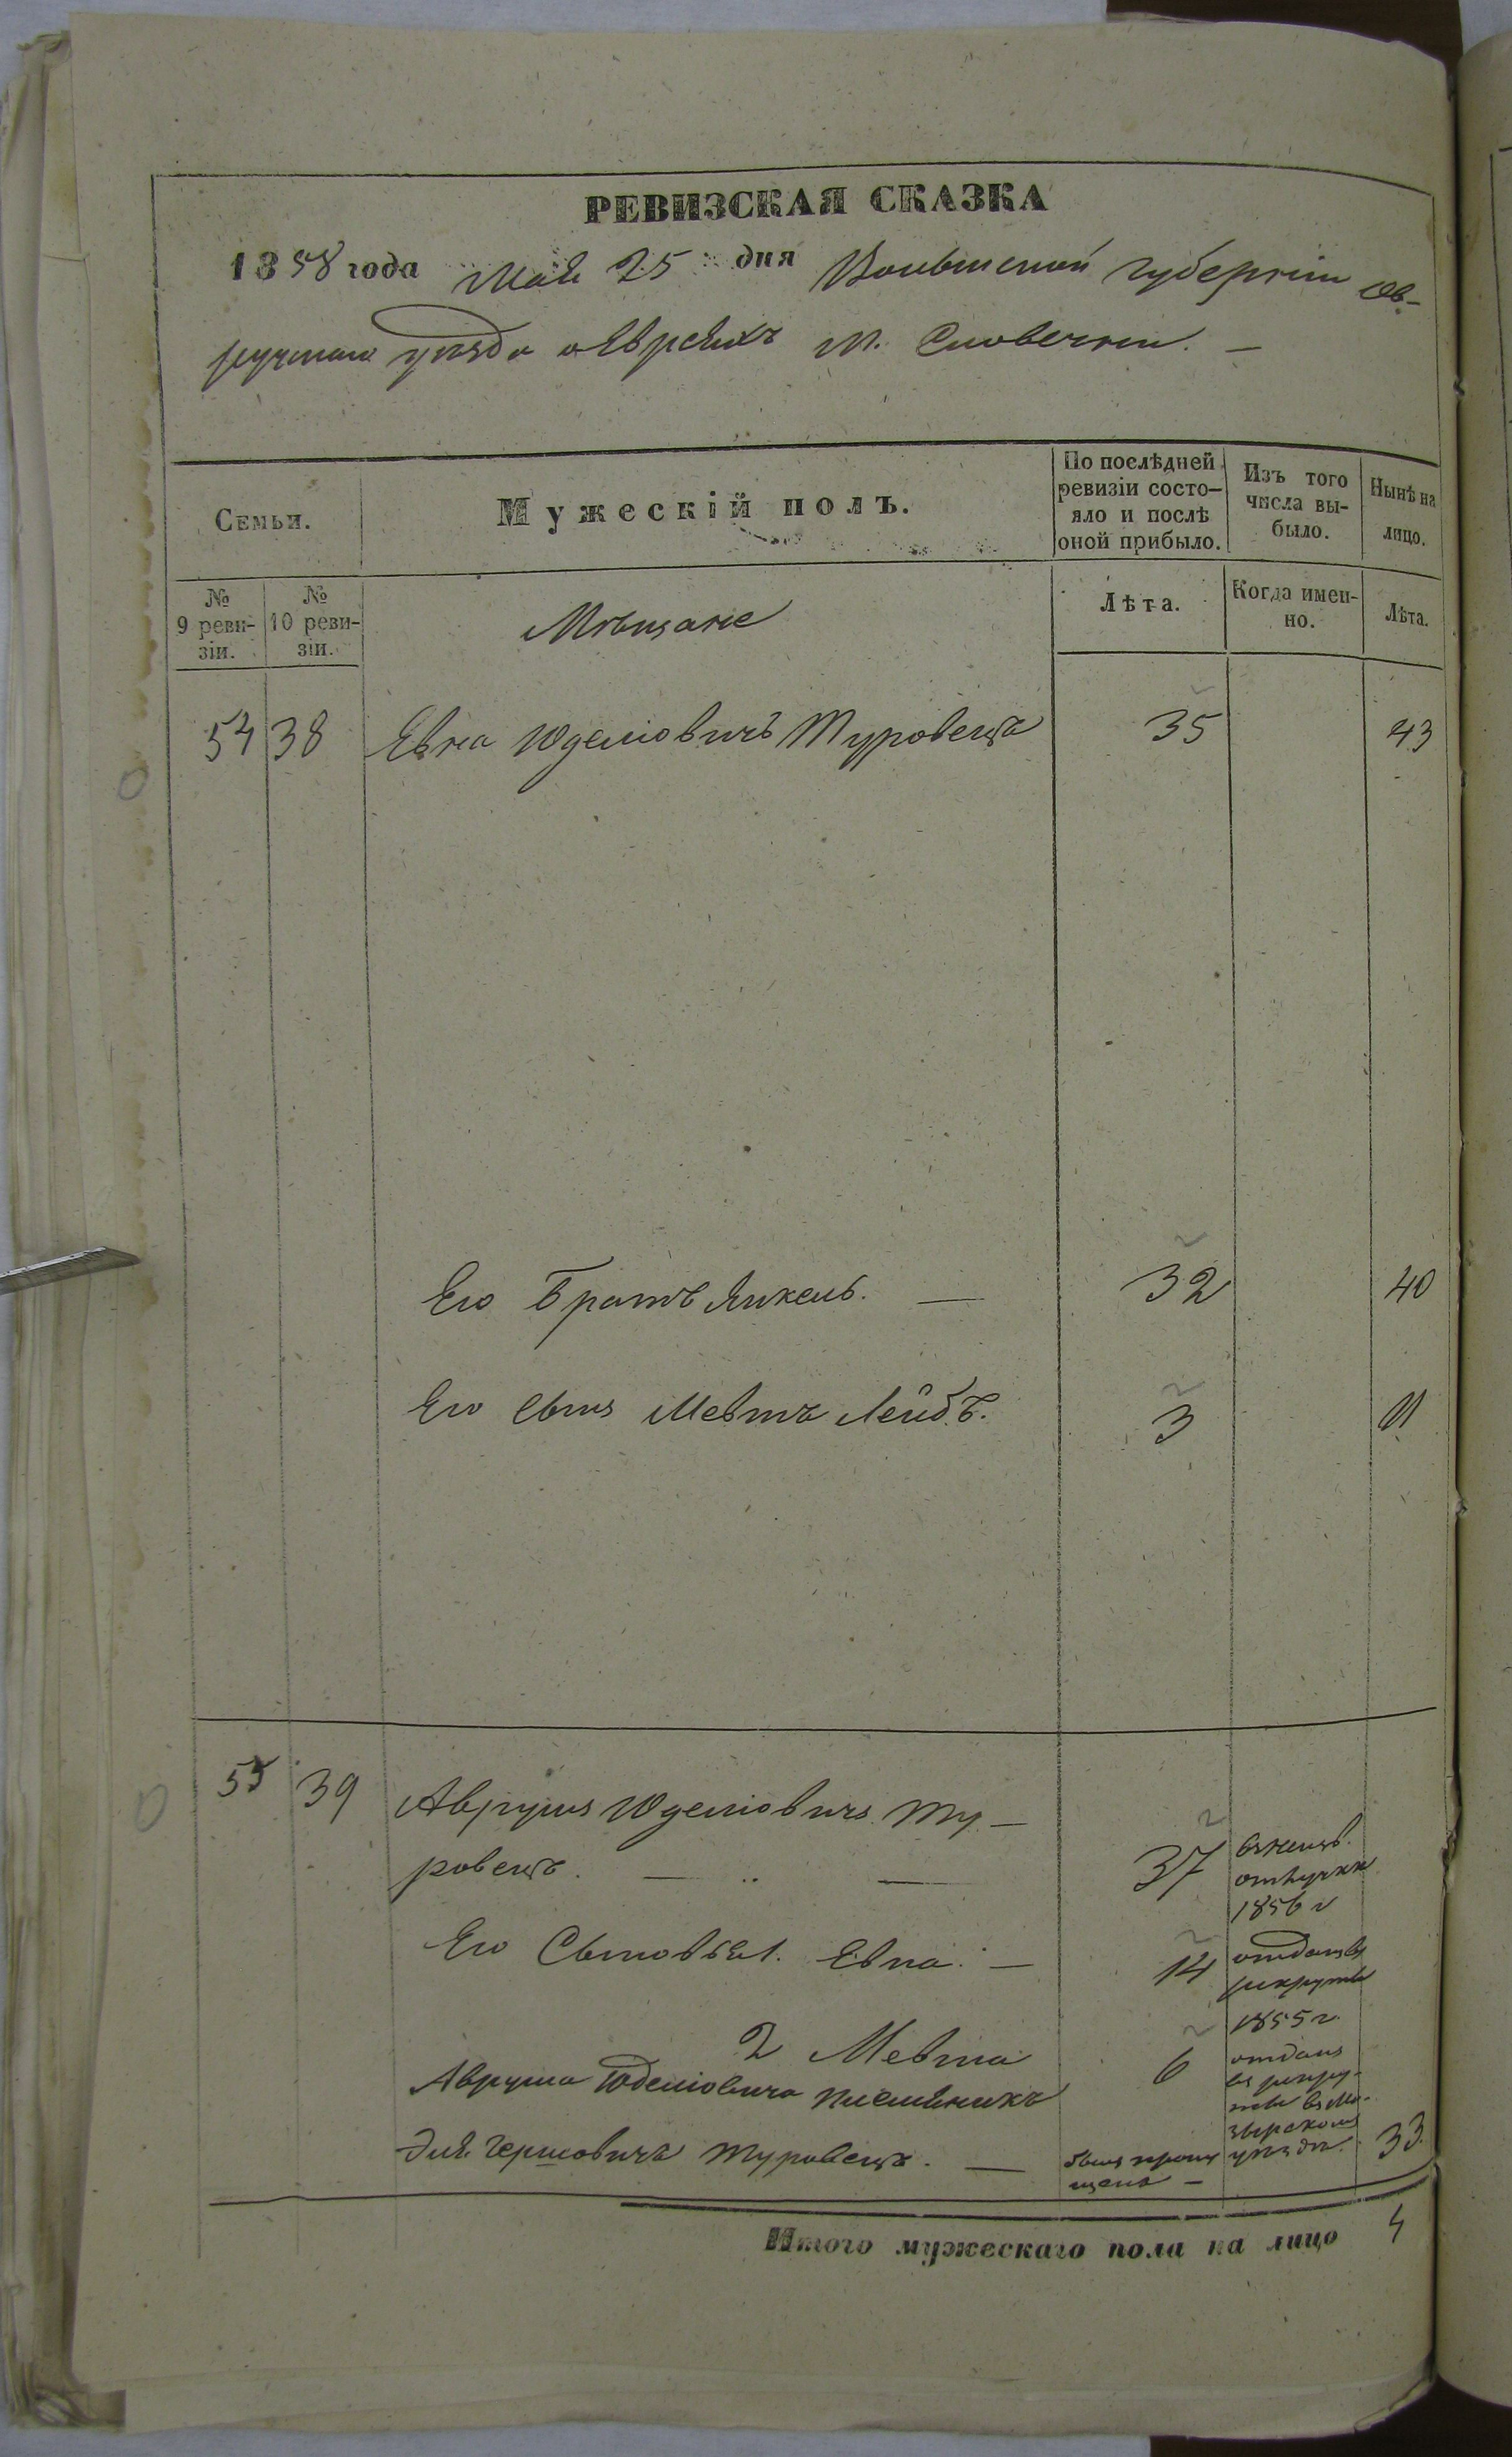 РЕВИЗСКАЯ СКАЗКА
1858 года Мая 25 дня Волынской губерніи Ов-
ручскаго уѣзда о Евреяхъ м. Словечни. —
Семьи.
Мужескій полъ.
По послѣдней
ревизіи состо-
яло и послѣ
оной прибыло.
Изъ того
числа вы-
было.
Нынѣ на
лицо.
№
9 реви-
зіи.
№
10 реви-
зіи.
Мѣщане
Лѣта.
Когда имен-
но.
Лѣта.
54 38 Евна Юделіовичъ Туровецъ 35 43
Его Братъ Янкель. — 32 40
Его Сынъ Мевтъ Лейбъ. 3 11
55 39 Аврумъ Юделіовичъ Ту-
ровецъ. — 37
отлучкѣ
1856 г
Его Сыновья 1. Евна. — 14 отданъ въ
рекруты
1855 г.
2 Мевта 6 отданъ
въ рекру-
ты въ Мо-
зырскомъ
уѣздѣ.
Аврума Юделіовича племѣникъ
Эля Гершовичъ Туровецъ. — былъ пропу
щенъ — 33
Итого мужескаго пола на лицо 4